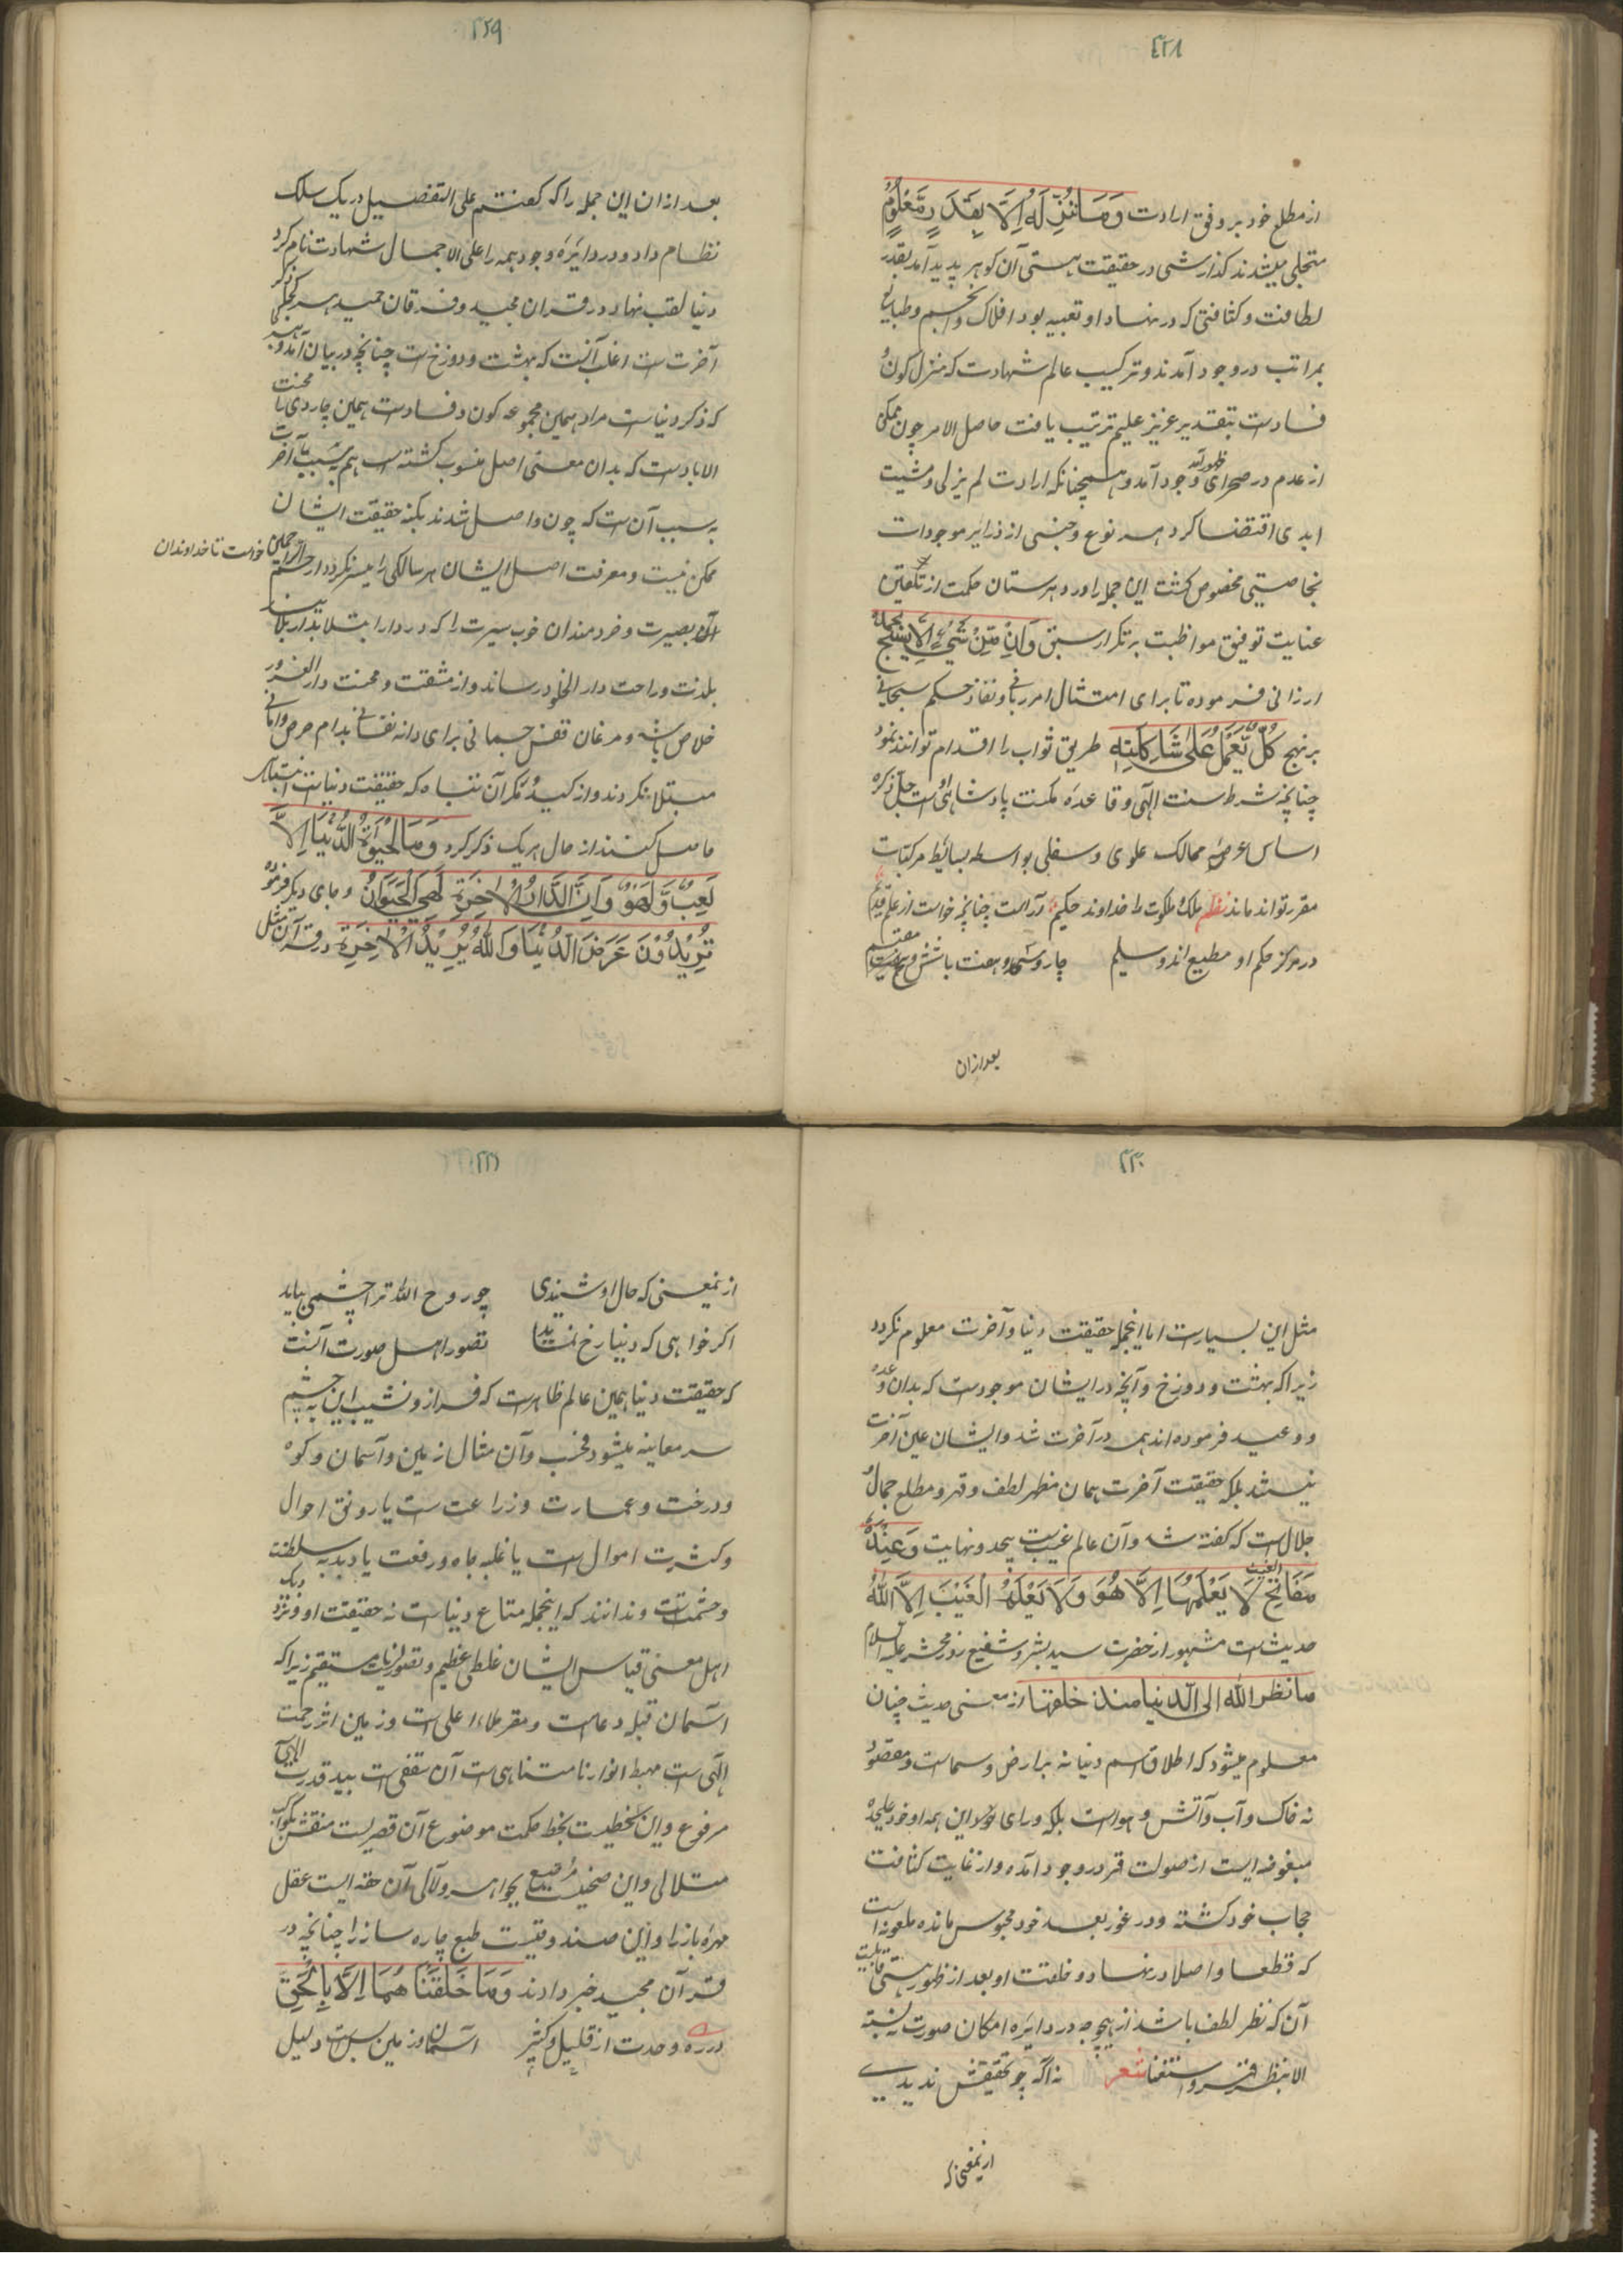 ۴۲۸
از مطلع خود بر وفق ارادت وَمَا نُنَزِّلُهُ اِلَّا بِقَدَرٍ مَّعْلُومٍ
متجلی میشدند کذارشی در حقیقت هستی آن کوهر پدید آمد بقدر
لطافت و کثافتی که در نهاد او تعبیه بود افلاک و انجم و طبایع
بمراتب در وجود آمدند و ترکیب عالم شهادت که منزل کون و
فسادست بتقدیر عزیز علیم ترتیب یافت حاصل الامر چون ممکن
از عدم در صحرای ظهور آمد وجود آمد و همچنانکه ارادت لم یزلی و مشیت
ابدی اقتضا کرد هر نوع و جنسی از ذرایر موجودات
بخاصیتی مخصوص کشت این جمله را در دبرستان حکمت از تلقین
عنایت توفیق مواظبت بر تکرار سبق وَاِنْ مِّنْ شَيْءٍ اِلَّا يُسَبِّحُ بِحَمْدِهِ
ارزانی فرموده تا برای امتثال امر ربانی و نفاذ حکم سبحانی
بر نهج كُلٌّ يَّعْمَلُ عَلٰى شَاكِلَتِهِ طریق ثواب را اقدام توانند نمود
چنانچه شرط سنت الهی و قاعده مکنت پادشاهی است جل ذکره
اساس عرصه ممالک علوی و سفلی بواسطه بسائط مرکبات
مقرر تواند ماند نظم ملک ملکوت را خداوند حکیم آراست چنانچه خواست از علم قدیم
در مرکز حکم او مطیع اند و سلیم چار و شش و هفت
بعد ازان
۴۲۹
بعد ازان این جمله را که کفتم علی التفصیل در یک سلک
نظام داد و در دایره وجود همه را علی الاجمال شهادت نام کرد
دنیا لقب نهاد در قران مجید و فرقان حمید هر کجا که ذکر
آخرت است اغلب آنست که بهشت و دوزخ است چنانچه در بیان آمد و هر
که ذکر دنیاست مراد همین مجموعه کون و فسادست همین چاردی با محنت
الابادست که بدان معنی اصل منسوب کشته است هم به سبب با آخرت
به سبب آن است که چون واصل شدند بکنه حقیقت ایشان
ممکن نیست و معرفت اصل ایشان هر سالکی را میسر نکردد ارحم الراحمین خواست تا خداوندان
آن بصیرت و خردمندان خوب سیرت را که در دار ابتلا
بلذت و راحت دار الخلود رساند و از مشقت و محنت دار الغرور
خلاص باشد و مرغان قفس جسمانی برای دانه نفسانی بدام حرص و امانی
مبتلا نکردند و از کید و مکر آن تباه که حقیقت دنیاست انتباه
حاصل کنند از حال هر یک ذکر کرد وَمَا الْحَيٰوةُ الدُّنْيَا اِلَّا
لَعِبٌ وَّلَهْوٌ وَاِنَّ الدَّارَ الْاٰخِرَةَ لَهِيَ الْحَيَوَانُ و جای دیکر فرمود
تُرِيْدُوْنَ عَرَضَ الدُّنْيَا وَاللّٰهُ يُرِيْدُ الْاٰخِرَةَ در قرآن مثل
۴۳۰
مثل این بسیارست اما اینجمله حقیقت دنیا و آخرت معلوم نکردد
زیرا که بهشت و دوزخ و آنچه در ایشان موجودست که بدان وعده
و وعید فرموده اند همه در آخرت شد و ایشان عین آخرت
نیستند بلکه حقیقت آخرت همان مظهر لطف و قهر و مطلع جمال و
جلال است که کفته شد و آن عالم غیب بیحد و نهایت وَعِنْدَهُ
مَفَاتِحُ الغیب لَا يَعْلَمُهَا اِلَّا هُوَ وَلَا يَعْلَمُ الْغَيْبَ اِلَّا اللّٰهُ
حدیث است مشهور از حضرت سید بشر و شفیع روز محشر علیه السلام
ما نظر الله الی الدنیا منذ خلقها از معنی حدیث چنان
معلوم میشود که اطلاق اسم دنیا نه بر ارض و سماست و مقصود
نه خاک و آب و آتش و هواست بلکه ورای این همه او خود علیحده
مبغوضه ایست از صولت قهر در وجود آمده و از غایت کثافت
حجاب خود کشته و در غور بعد خود محبوس مانده ملعونه است
که قطعا و اصلا در نهاد و خلقت او بعد از ظهور هستی قابلیت
آن که نظر لطف باشد از هیچ وجه در دایره امکان صورت نبسته
الا بنظر قهر و استغنا شعر نه اکه چو تحقیقش ندیدی
ازینمعنی که
۴۳۱
ازینمعنی که حال او شنیدی چو روح الله ترا چشمی بباید
اکر خواهی که دنیا رخ نماید تصور اهل صورت آنست
که حقیقت دنیا همین عالم ظاهرست که فراز و نشیب این به چشم
سر معاینه میشود و آن مثال زمین و آسمان و کوه
و درخت و عمارت و زراعت ست یا رونق احوال
و کثرت اموال ست یا غلبه جاه و رفعت یا دبدبه سلطنت
و حشمت ست و ندانند که اینجمله متاع دنیاست نه حقیقت او و نزدیک
اهل معنی قیاس ایشان غلطی عظیم و تصور نامستقیم زیرا که
آسمان قبله دعاست و مقر ملاء اعلی است و زمین اثر رحمت
الهی است مهبط انوار نامتناهی ست آن سقفی است بید قدرت الهی
مرفوع و این خطیست بخط حکمت موضوع آن قصریست منقش بکواکب
متلالی و این صحنیست مرصع بجواهر و لآلی آن حقه ایست عقل
مهره باز را و این صندوقیست طبع چاره ساز را چنانچه در
قرآن مجید خبر دادند وَمَا خَلَقْنَاهُمَا اِلَّا بِالْحَقِّ
در ره وحدت از قلیل و کثیر آسمان و زمین بس است دلیل